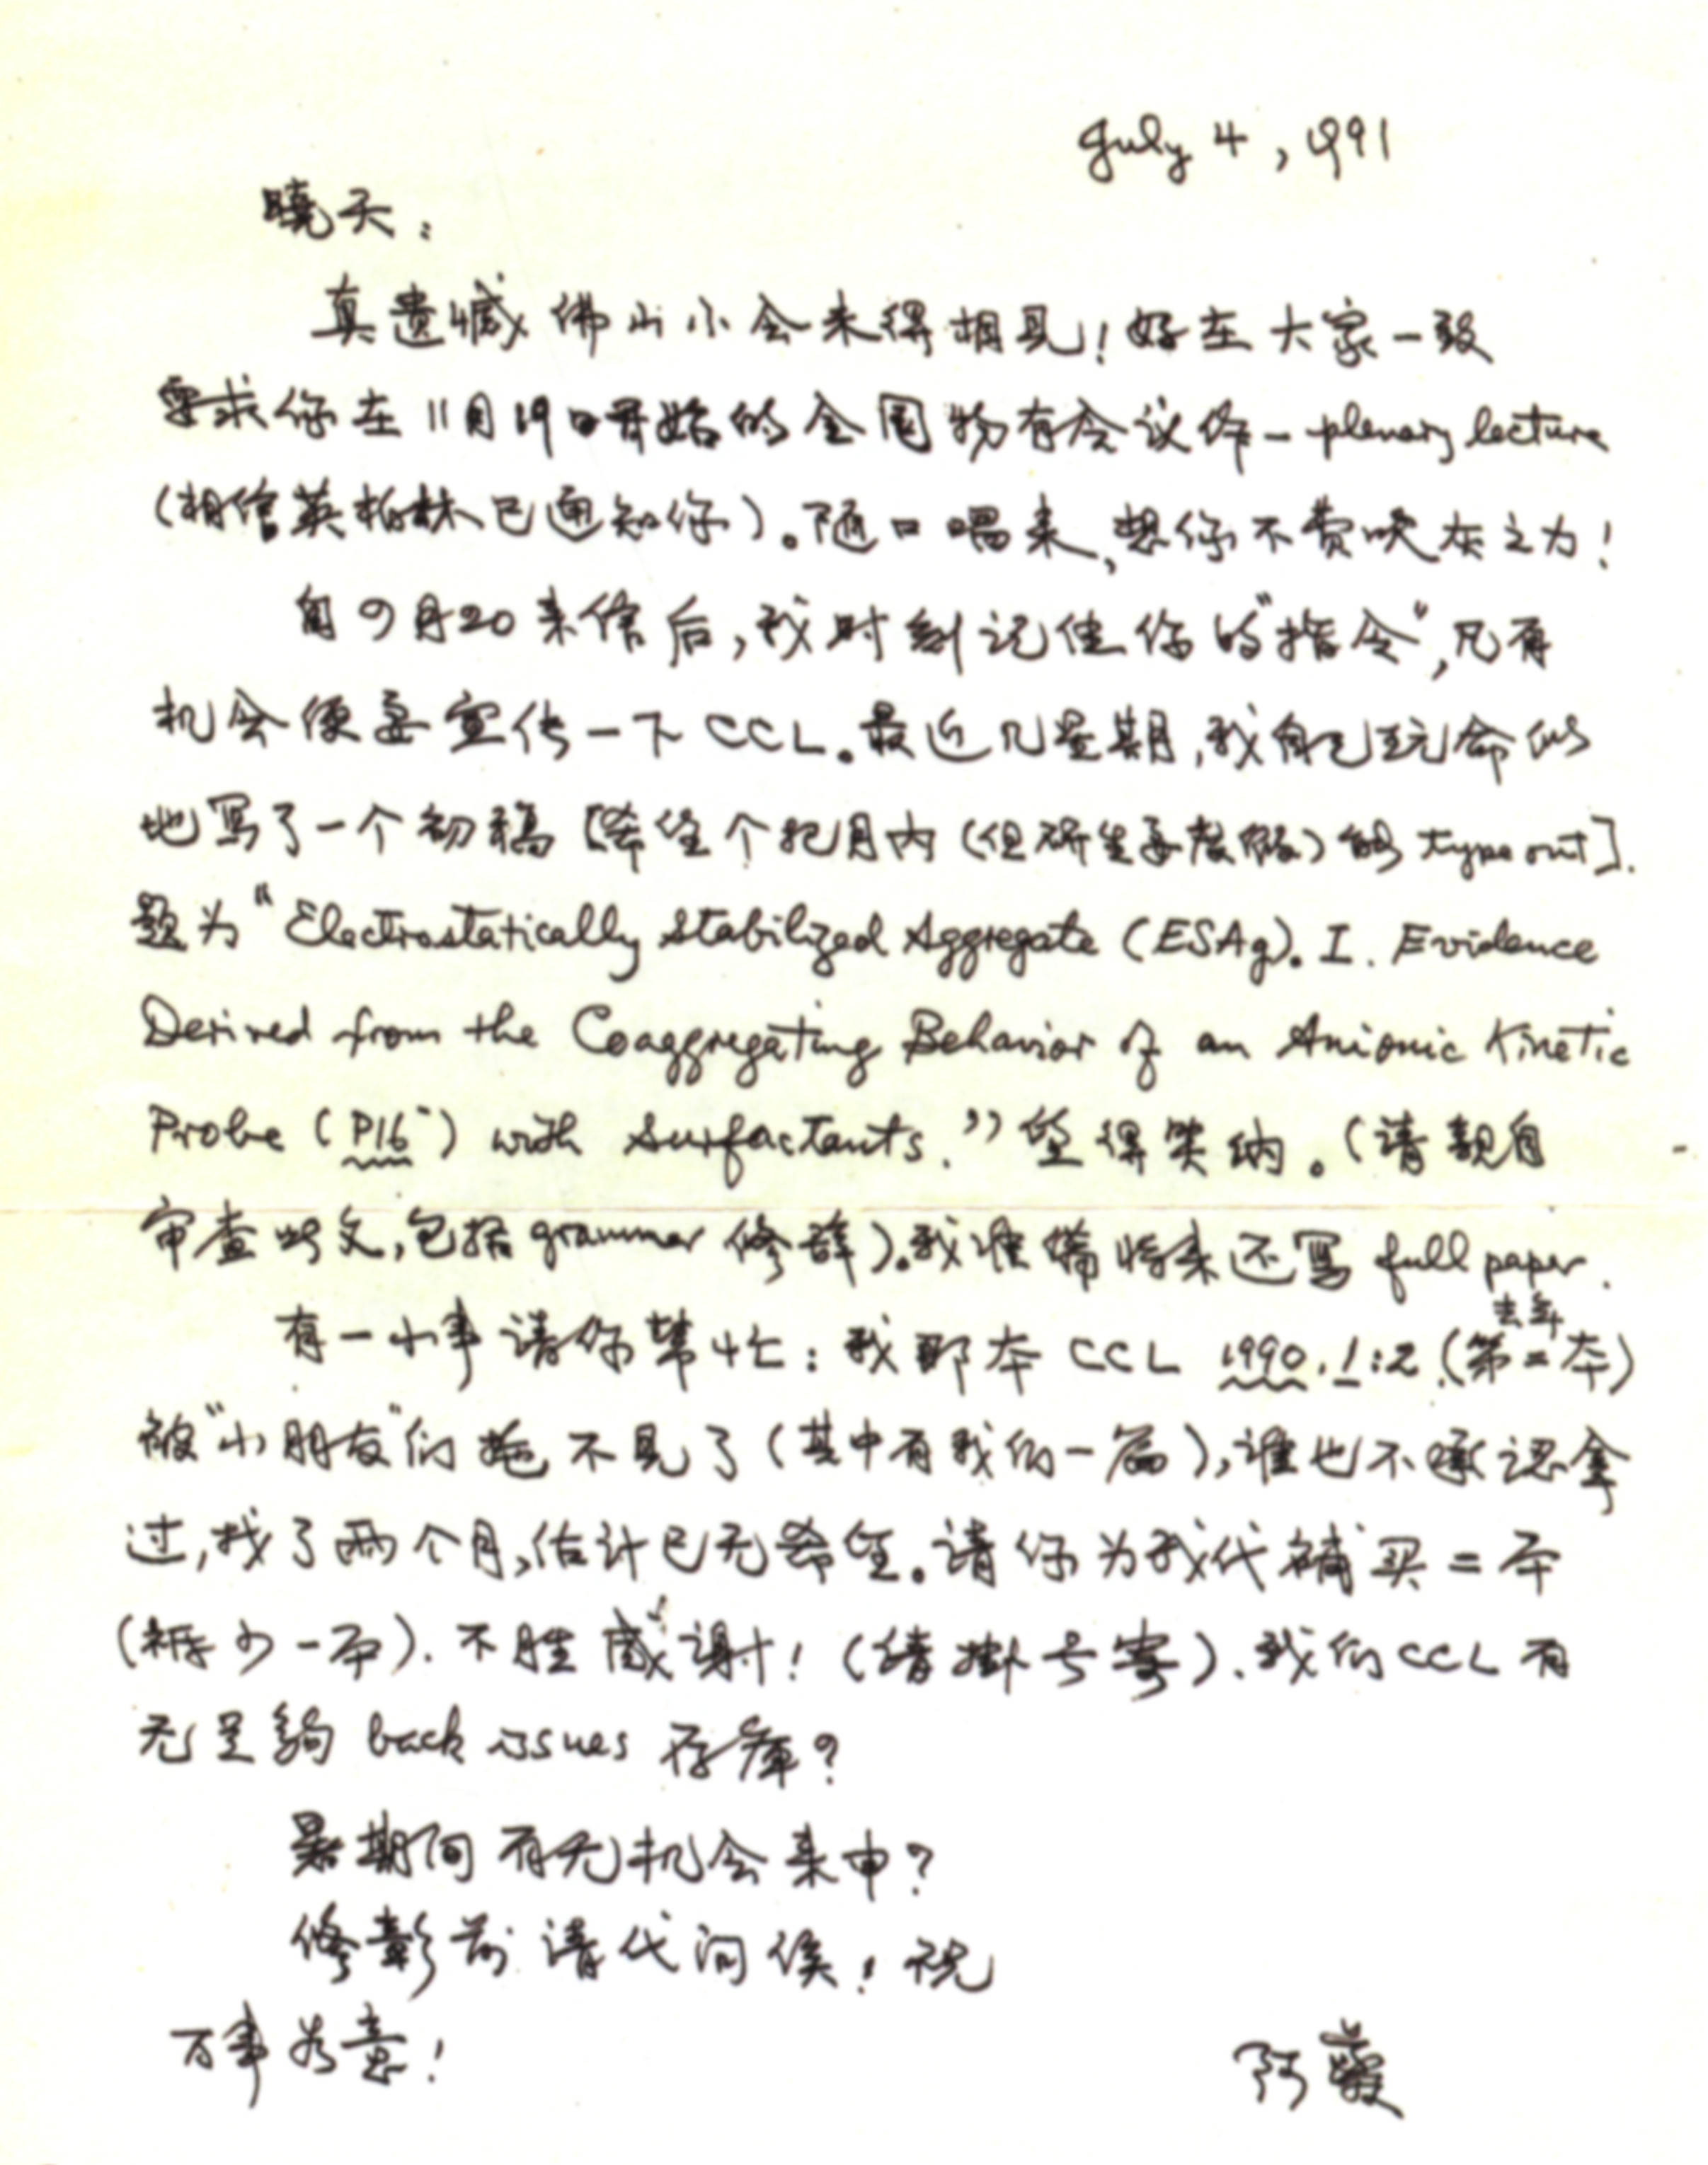 July 4, 1991
晓天：
真遗憾佛山小会未得相见！好在大家一致
要求你在11月19日开始的全国物有会议作一 plenary lecture
（相信英柏林已通知你）。随口唱来，想你不费吹灰之力！
自 月20来信后，我时刻记住你的“指令”，凡有
机会便要宣传一下CCL。最近几星期，我自己玩命似
地写了一个初稿［希望个把月内（但研生要放假）能 type out］.
题为“Electrostatically Stabilized Aggregate (ESAg). I. Evidence
Derived from the Coaggregating Behavior of an Anionic Kinetic
Probe (P16⁻) with Surfactants.”望得笑纳。（请亲自
审查此文，包括 grammar 修辞）。我准备将来还写 full paper.
有一小事请你帮忙：我那本 CCL 1990.1:2.（去年第二本）
被“小朋友”们拖不见了（其中有我们一篇），谁也不承认拿
过，找了两个月，估计已无希望。请你为我代补买二本
（至少一本）. 不胜感谢！（请掛号寄）. 我们CCL有
无足夠 back issues 存库？
暑期间有无机会来申？
修彰前请代问候！祝
万事如意！
阿蕤